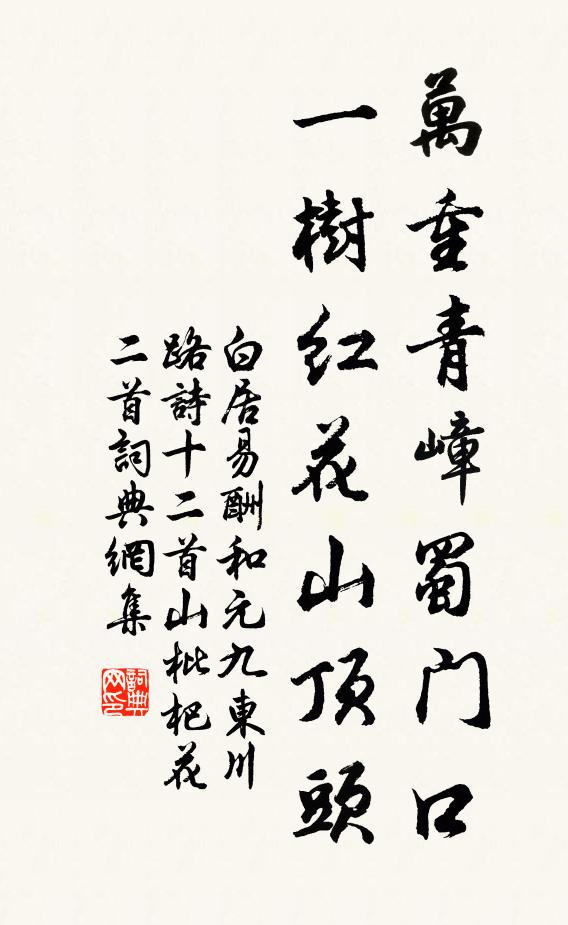 萬重青嶂蜀門口
一樹紅花山頂頭
白居易酬和元九東川
路詩十二首山枇杷花
二首詞典網集
詞典网印